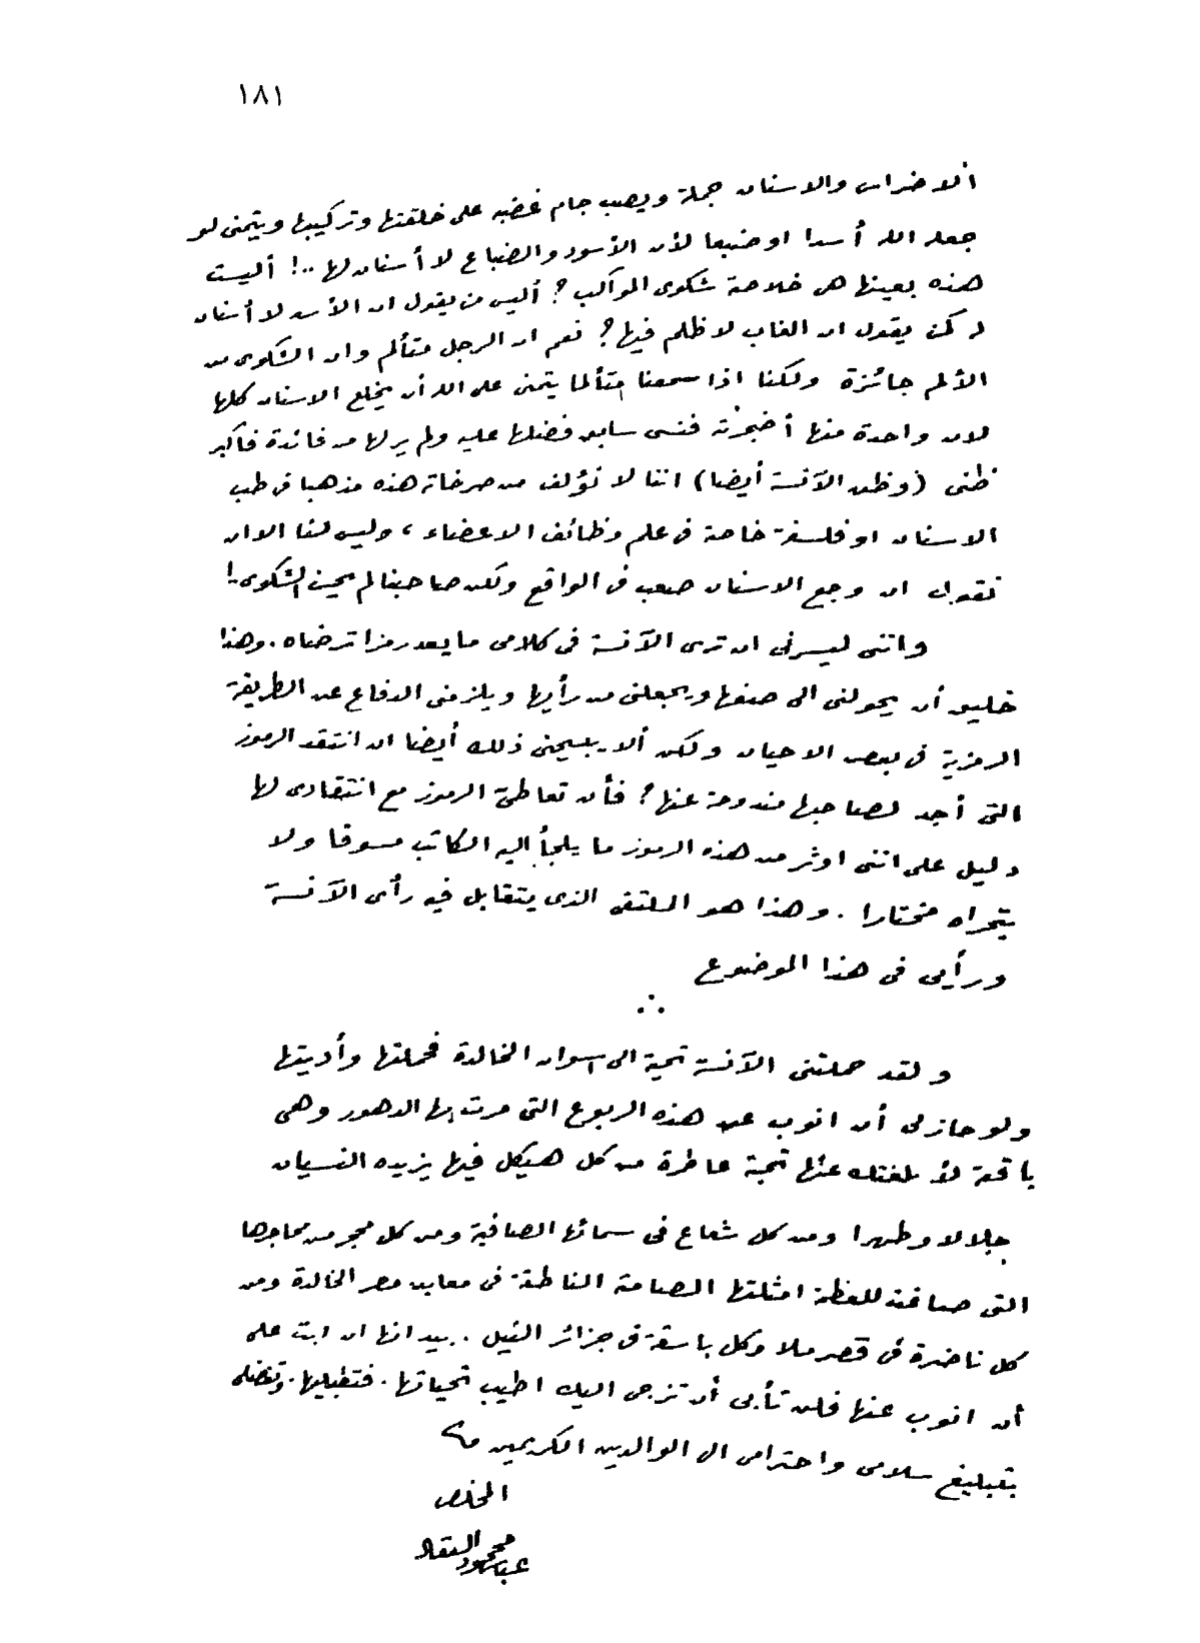 ١٨١
الاضراس والاسنان جملة ويصب جام غضبه على خلقتها وتركيبها ويتمنى لو
جعله الله أسدا او ضبعا لأن الأسود والضباع لا أسنان لها ..! أليست
هذه بعينها هى خلاصة شكوى المواكب ؟ أليس من يقول ان الأسد لا أسنان
له كمن يقول ان الغاب لا ظلم فيها ؟ نعم ان الرجل متألم وان الشكوى من
الألم جائزة ولكنا اذا سمعنا متألما يتمنى على الله أن يخلع الاسنان كلها
لان واحدة منها أضجرته فنسى سابق فضلها عليه ولم ير لها من فائدة فأكبر
ظنى (وظن الآنسة أيضا) اننا لا نؤلف من صرخاته هذه مذهبا فى طب
الاسنان او فلسفة خاصة فى علم وظائف الاعضاء ، وليس لنا الا ان
نقول ان وجع الاسنان صعب فى الواقع ولكن صاحبنا لم يحسن الشكوى !
واننى ليسرنى ان ترى الآنسة فى كلامى ما يعد رمزا ترضاه . وهذا
خليق أن يحولنى الى صفها ويجعلنى من رأيها ويلزمنى الدفاع عن الطريقة
الرمزية فى بعض الاحيان ولكن ألا يبيحنى ذلك أيضا ان انتقد الرموز
التى أجد لصاحبها مندوحة عنها ؟ فأن تعاطىّ الرموز مع انتقادى لها
دليل على اننى اوثر من هذه الرموز ما يلجأ اليه الكاتب مسوقا ولا
يتحراه مختارا . وهذا هو الملتقى الذى يتقابل فيه رأى الآنسة
ورأيى فى هذا الموضوع
∴
ولقد حملتنى الآنسة تحية الى اسوان الخالدة فحملتها وأديتها
ولو جاز لى أن انوب عن هذه الربوع التى مرت بها الدهور وهى
باقية لأبلغتك عنها تحية عاطرة من كل هيكل فيها يزيده النسيان
جلالا وطهرا ومن كل شعاع فى سمائها الصافية ومن كل محجر من محاجرها
التى صاغت للعظمة امثلتها الصامتة الناطقة فى معابد مصر الخالدة ومن
كل ناضرة فى قصر ملا وكل باسقة فى جزائر النيل . بيد انها ان ابت على
أن انوب عنها فلن تأبى أن تزجى اليك اطيب تحياتها . فتقبليها . وتفضلى
بتبليغ سلامى واحترامى الى الوالدين الكريمين
المخلص
عباس محمود العقاد